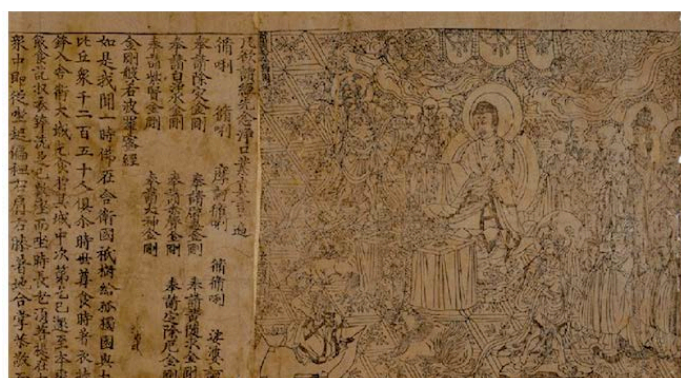 凡欲讀經先念淨口業真言一遍
脩唎 脩唎 摩訶脩唎 脩脩唎
奉請除灾金剛 奉請黃隨求金剛
奉請白淨水金剛 奉請赤聲金剛 奉請定除厄金剛
奉請紫賢金剛 奉請大神金剛
金剛般若波羅蜜經
如是我聞一時佛在舍衛國祇樹給孤獨園與大
比丘衆千二百五十人俱尒時世尊食時著衣持
鉢入舍衛大城乞食於其城中次第乞已還至本處
飯食訖收衣鉢洗足已敷座而坐時長老須菩提在大
衆中即從座起偏袒右肩右膝著地合掌恭敬而